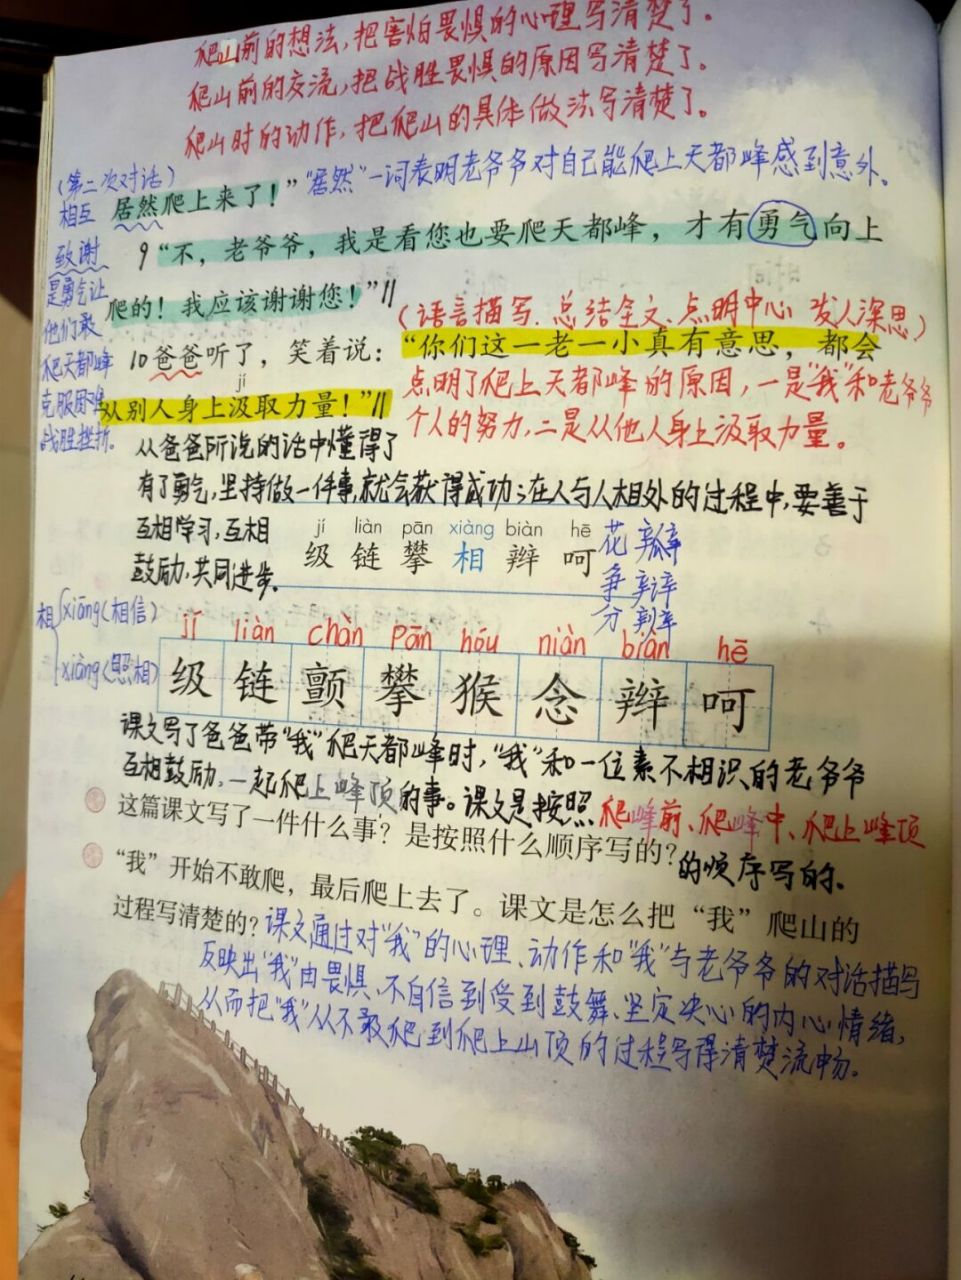 爬山前的想法,把害怕畏惧的心理写清楚了。
爬山前的交流,把战胜畏惧的原因写清楚了。
爬山时的动作,把爬山的具体做法写清楚了。
(第二次对话)
居然爬上来了!”
“居然”一词表明老爷爷对自己能爬上天都峰感到意外。
相互
致谢
是勇气让
他们敢
爬天都峰
克服困难
战胜挫折。
9 “不,老爷爷,我是看您也要爬天都峰,才有勇气向上
爬的!我应该谢谢您!”//
(语言描写、总结全文、点明中心 发人深思)
10 爸爸听了,笑着说:“你们这一老一小真有意思,都会
jí
从别人身上汲取力量!”//
点明了爬上天都峰的原因,一是“我”和老爷爷
个人的努力,二是从他人身上汲取力量。
从爸爸所说的话中懂得了
有了勇气,坚持做一件事,就会获得成功;在人与人相处的过程中,要善于
互相学习,互相
鼓励,共同进步。
jí liàn pān xiàng biàn hē
级 链 攀 相 辫 呵
花瓣
争辩
分辨
相{xiāng(相信)
xiàng(照相)
jí liàn chàn pān hóu niàn biàn hē
级 链 颤 攀 猴 念 辫 呵
课文写了爸爸带“我”爬天都峰时,“我”和一位素不相识的老爷爷
互相鼓励,一起爬上峰顶的事。课文是按照爬峰前、爬峰中、爬上峰顶
这篇课文写了一件什么事?是按照什么顺序写的?
的顺序写的。
“我”开始不敢爬,最后爬上去了。课文是怎么把“我”爬山的
过程写清楚的?
课文通过对“我”的心理、动作和“我”与老爷爷的对话描写
反映出“我”由畏惧、不自信到受到鼓舞、坚定决心的内心情绪,
从而把“我”从不敢爬到爬上山顶的过程写得清楚流畅。